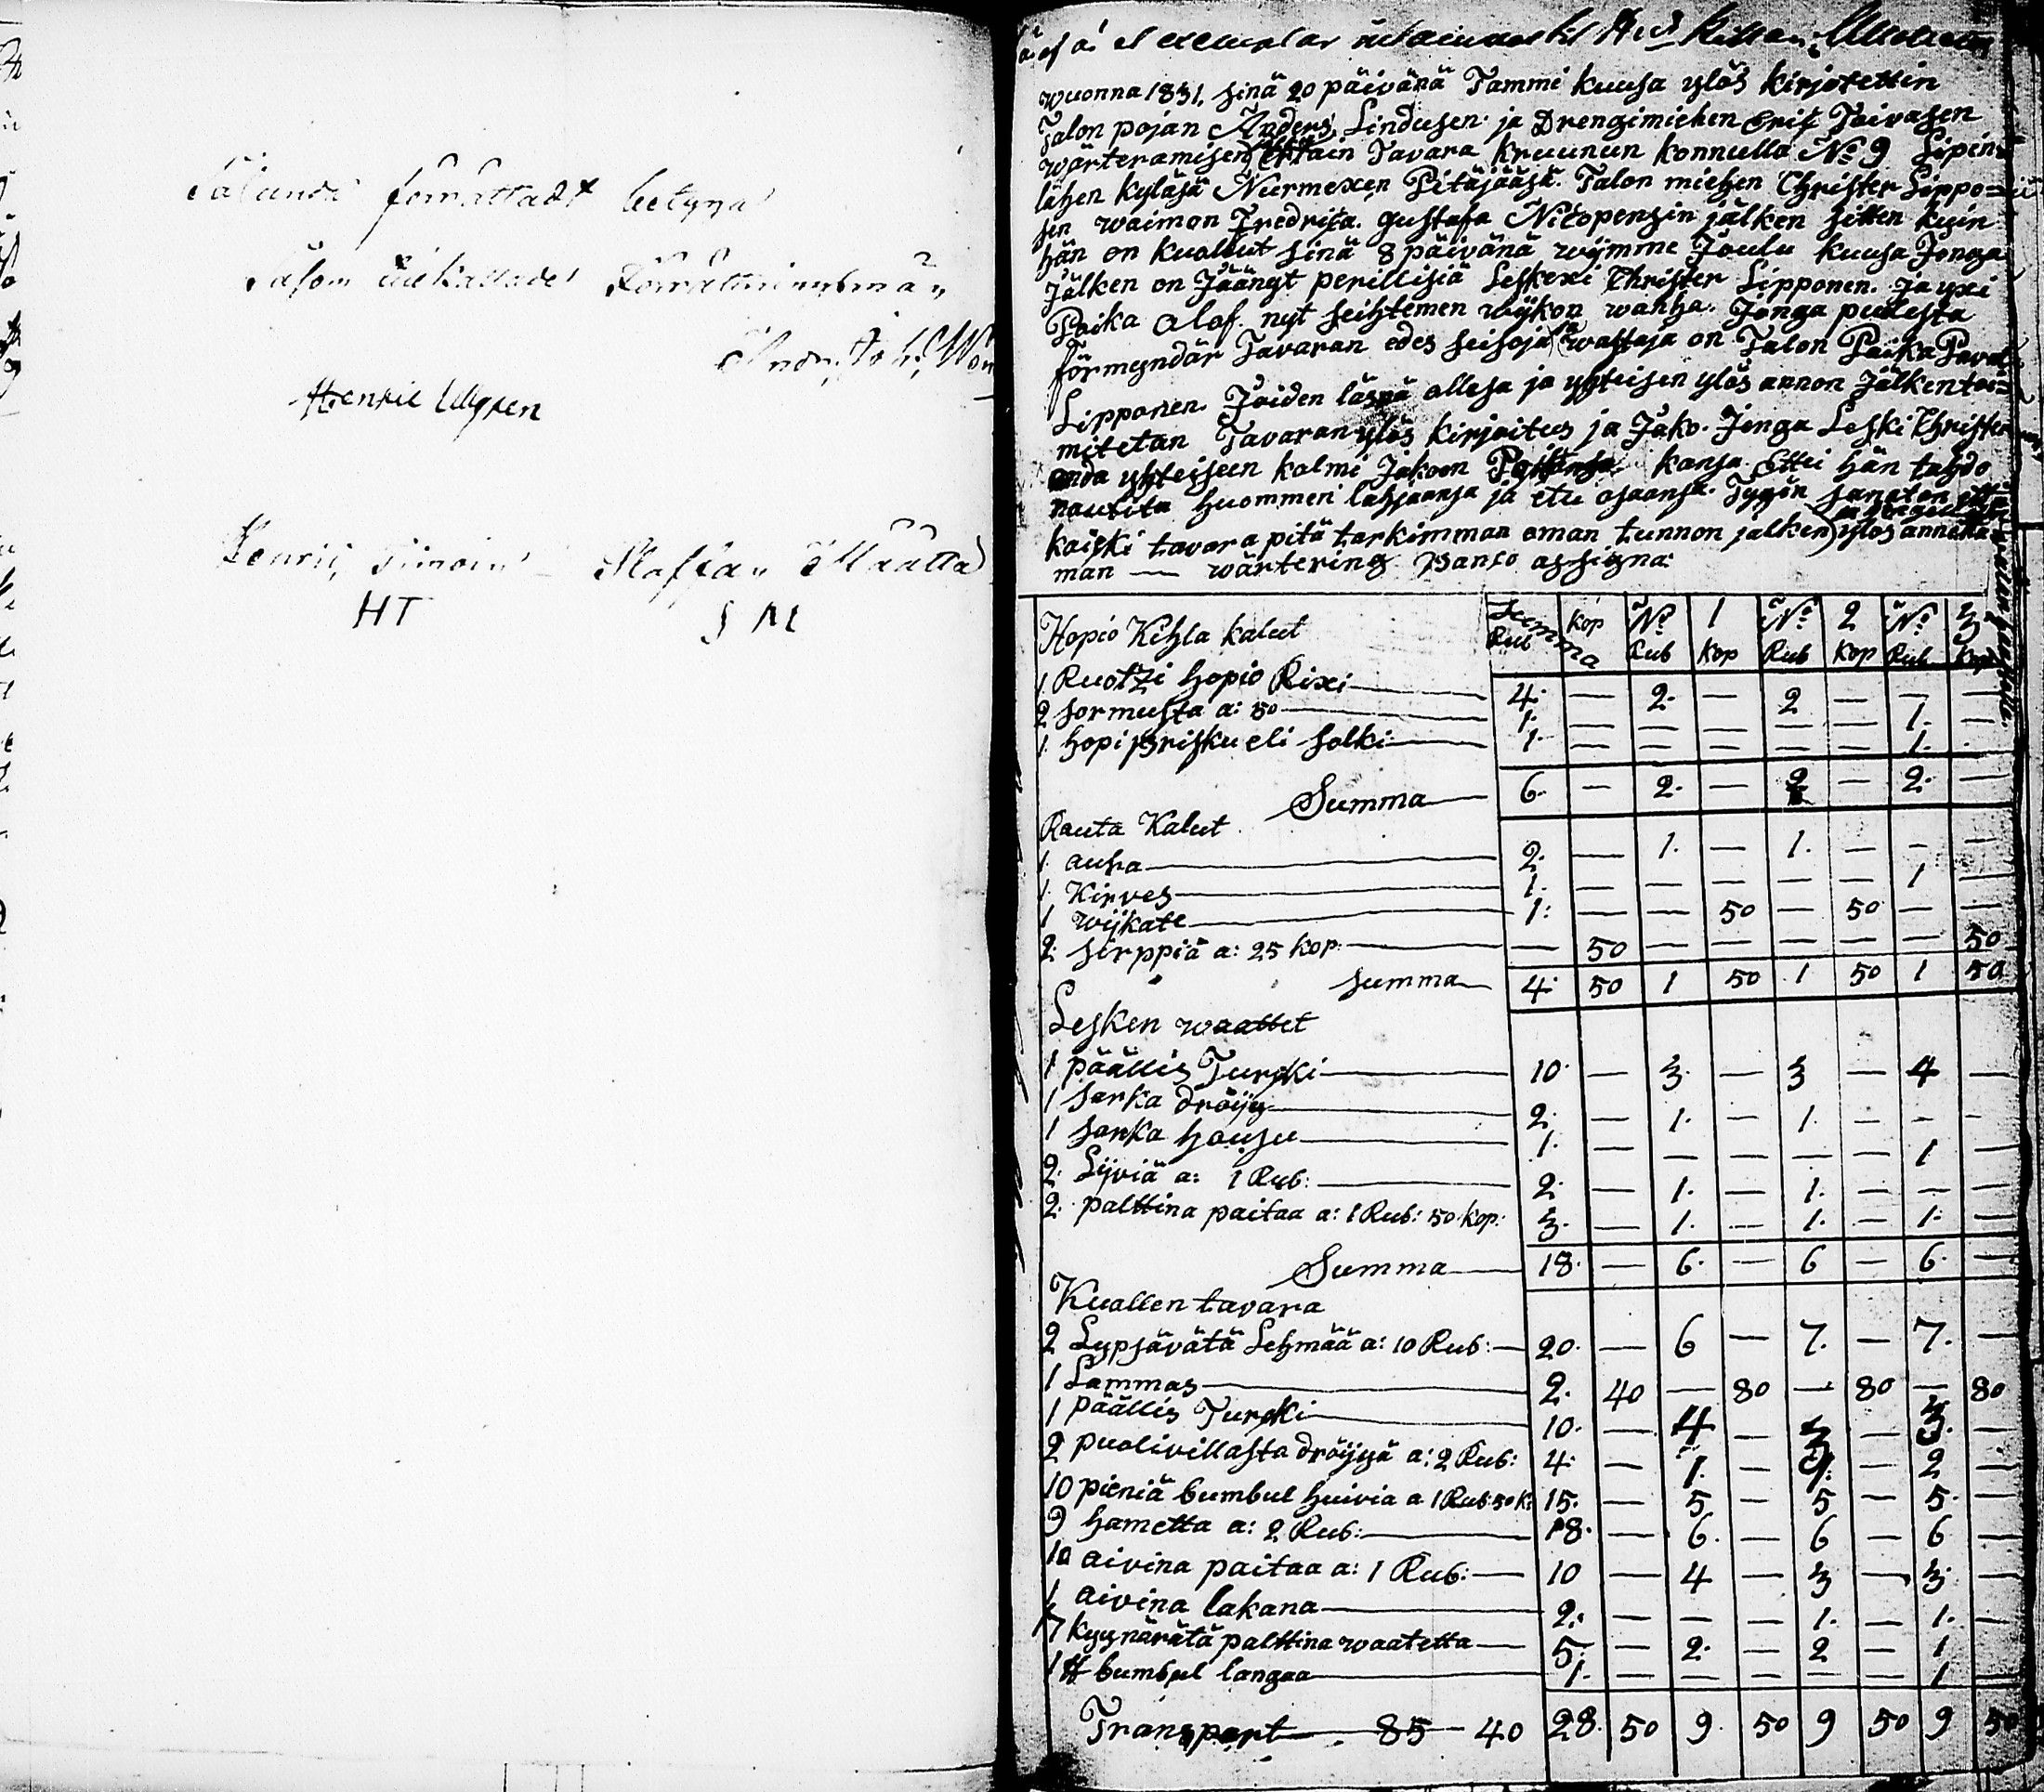 Sålunda förrättadt betyga
Såsom tilkallade
Henric Ullgren
Henric Timoin Staffan Määttä
HT S M
exemplar
wuonna 1831, sinä 20 päivänä Tammi kuusa ylös kirjotettin
Talon pojan Anders Lindusen ja Drengimiehen Erik Toivasen
wärteramisen Tavara kruunun konnulla No 9 Lipin=
lahen kyläsä Nurmexen Pitäjääsä. Talon miehen Christer Lippo=
sen waimon Fredrika gustafa jälken sitten kuin
hän on kuollut sinä 8 päivänä wijmme Joulu kuusa Jonga
Jälken on Jäängt perillisiä Leskexi Christer Lipponen. ja yxi
Poika Olof nyt seihtemen wijkon wanha. Jonga puolesta
förmyndär Tavaran edes seisoja ja wastaja on Talon Poika Paval
Lipponen. Joiden läsnä ollesa ja yhteisen ylös annon Jälken toi=
mitetan Tavaran ylös kirjoitus ja Jako. Jonga Leski Christer
anda yhteiseen kolmi Jakoon Poikansa kansa. Ettei hän tahdo
nautita huommen lahjaansa ja etu osaansa.
kaicki tavara pitä tarkimman oman tunnon jalken ylös annetta=
man — wärtering Banco assigna:
Hopio Kihla kalut Summa Rub kop No 1 Rub kop No 2 Rub kop No 3 Rub kop
1 Ruotzi hopio Rixi — 4. — 2. — 2 — — —
2 sormusta a: 50 — 1. — — — — — 1. —
1. hopi priskueli solki — 1. — — — — — 1. —
Summa — 6. — 2. — 2 — 2. —
Rauta Kalut
1. auha — 2. — 1. — 1. — — —
1. Kirves — 1. — — — — — 1 —
1 wijkate — 1: — — 50 — 50 — —
2. sirppiä a: 25 kop: — — 50 — — — — — 50
summa — 4. 50 1 50 1 50 1 50
Lesken waattet
1 päällis Turcki — 10. — 3. — 3 — 4 —
1 sarka dröijy — 2. — 1. — 1. — — —
1 sarka housu — 1. — — — — — 1 —
2. Lijviä a: 1 Rub: — 2. — 1. — 1. — — —
2. palttina paitaa a: 1 Rub: 50 kop: 3. — 1. — 1. — 1. —
Summa — 18. — 6. — 6 — 6. —
Kuallen tavara
2 Lypsävätä Lehmää a: 10 Rub: — 20. — 6 — 7. — 7. —
1 Lammas — 2. 40 — 80 — 80 — 80
1 päällis Turcki — 10. — 4 — 3 — 3. —
2 puolivillasta dröijyä a: 2 Rub: 4. — 1. — 1. — 2 —
10 pieniä bumbul huivia a 1 Rub: 50 K: 15. — 5 — 5 — 5. —
9 hametta a: 2 Rub: — 18. — 6. — 6 — 6 —
10 aivina paitaa a: 1 Rub: — 10 — 4 — 3 — 3. —
1 aivina lakana — 2. — — — 1. — 1. —
7 kyynärätä palttina waatetta — 5. — 2. — 2 — 1 —
1 ℔ bumbul langaa — 1. — — — — — 1 —
Transport — 85 — 40 28. 50 9. 50 9 50 9 50